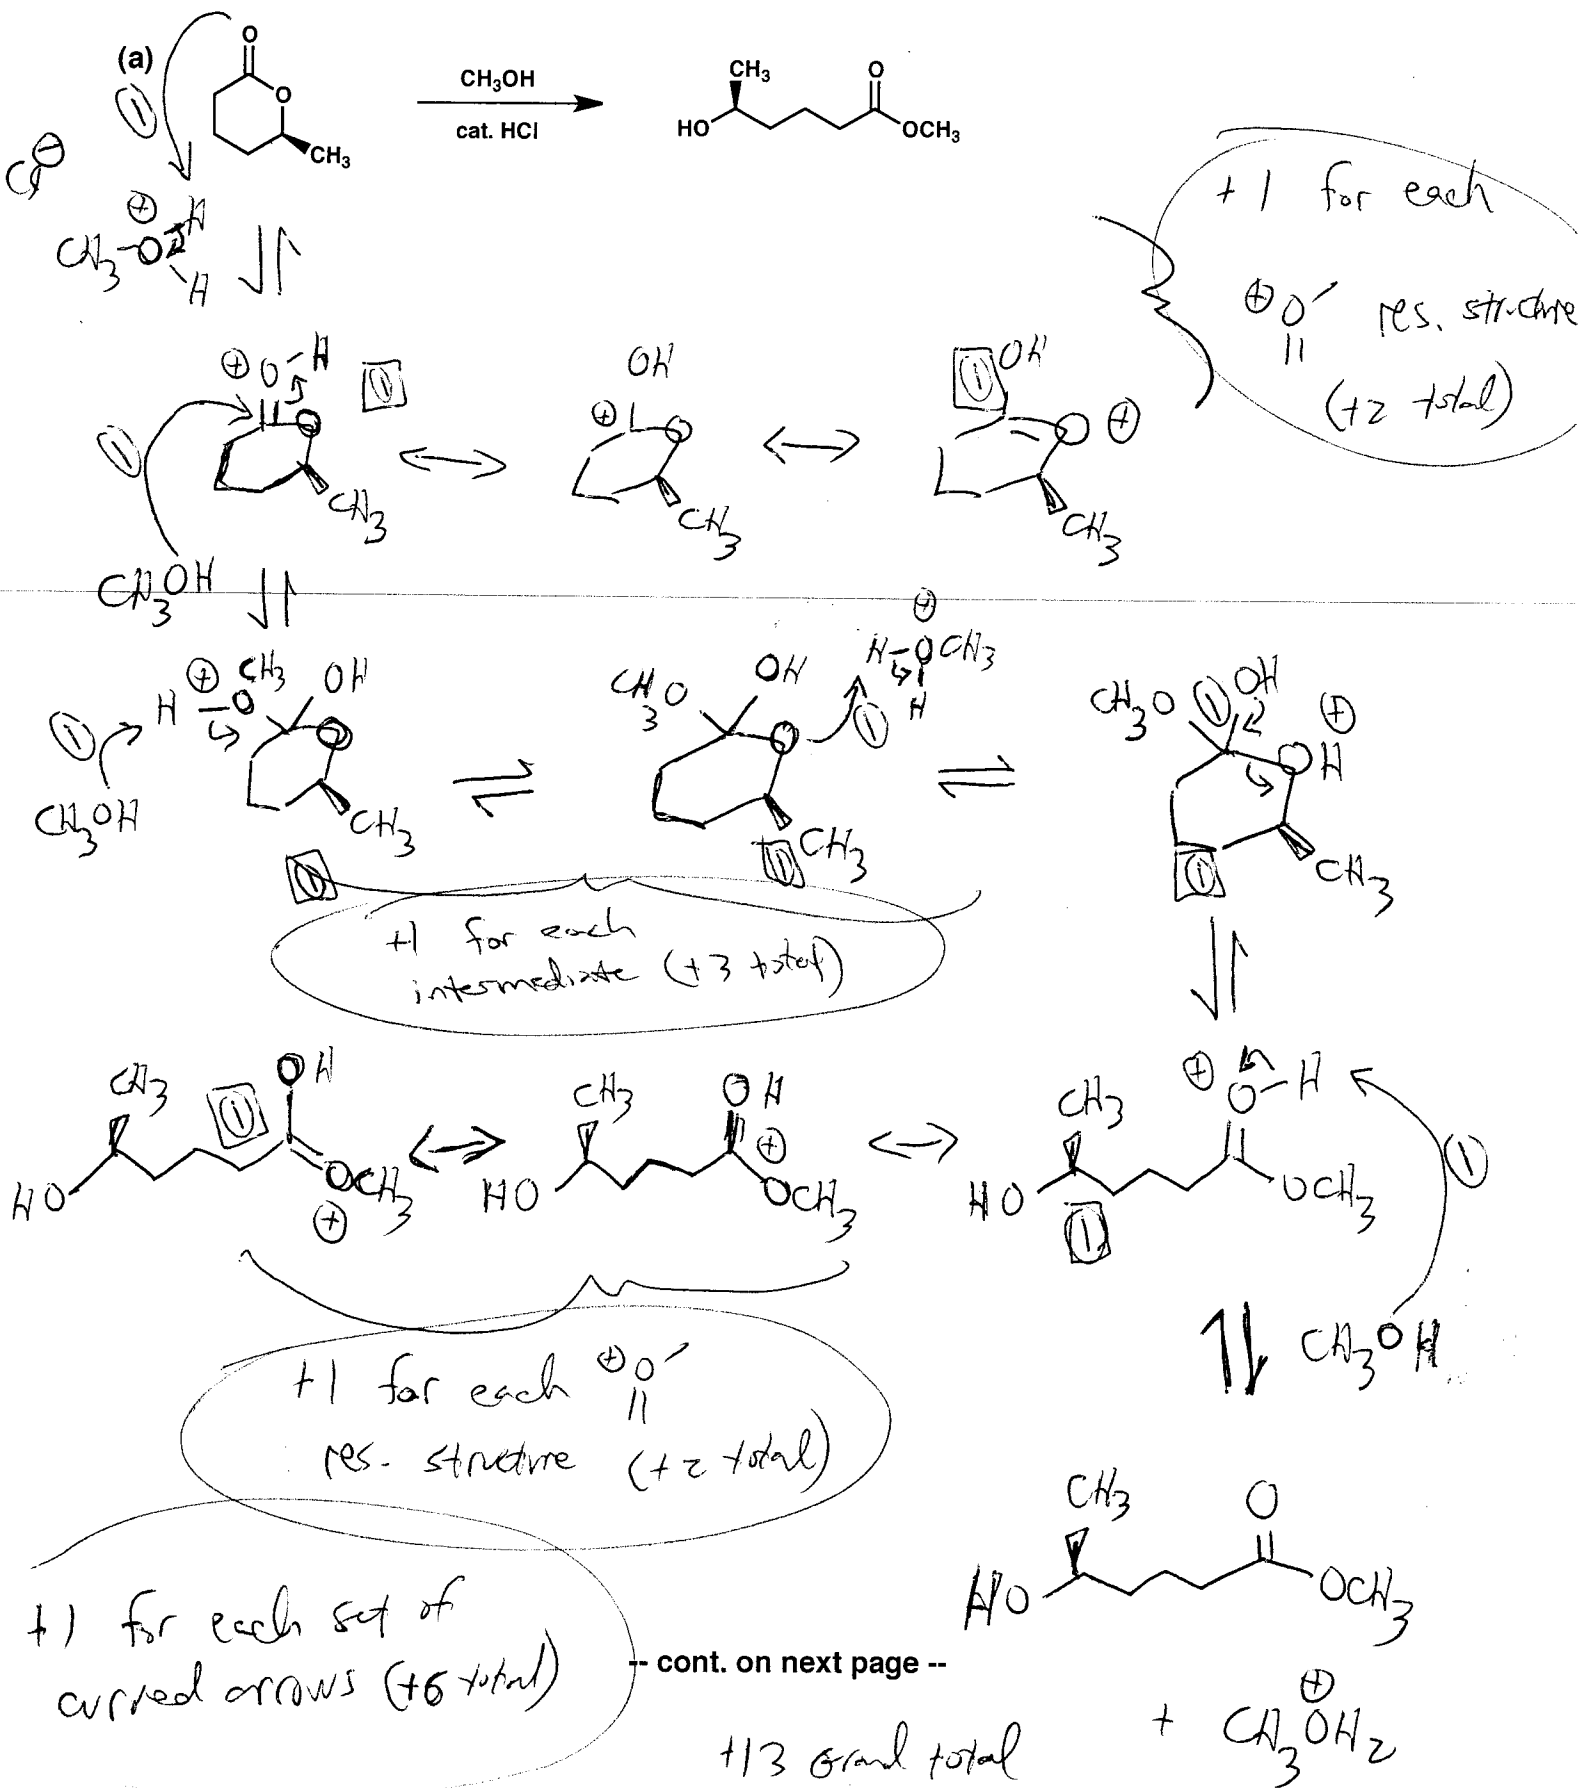 (a)
O
O
CH₃
CH₃OH
cat. HCl
CH₃
HO
O
OCH₃
①
Cl ⊖
⊕ H
CH₃-O
H
+1 for each
⊕ O
res. structure
(+2 total)
⊕ O-H
①
O
CH₃
①
CH₃OH
OH
⊕
O
CH₃
①
OH
O ⊕
CH₃
①
CH₃OH
H ⊕ O CH₃
OH
O
CH₃
①
CH₃O
OH
O
①
CH₃
①
⊕
H-OCH₃
H
CH₃O
①
OH
⊕
OH
CH₃
①
+1 for each
intermediate (+3 total)
CH₃
①
OH
HO
OCH₃
⊕
CH₃
OH
⊕
HO
OCH₃
CH₃
⊕ O-H
HO
①
OCH₃
①
CH₃OH
+1 for each ⊕ O
res. structure (+2 total)
CH₃
O
HO
OCH₃
+1 for each set of
curved arrows (+6 total)
-- cont. on next page --
+ CH₃OH₂
⊕
+13 Grand total